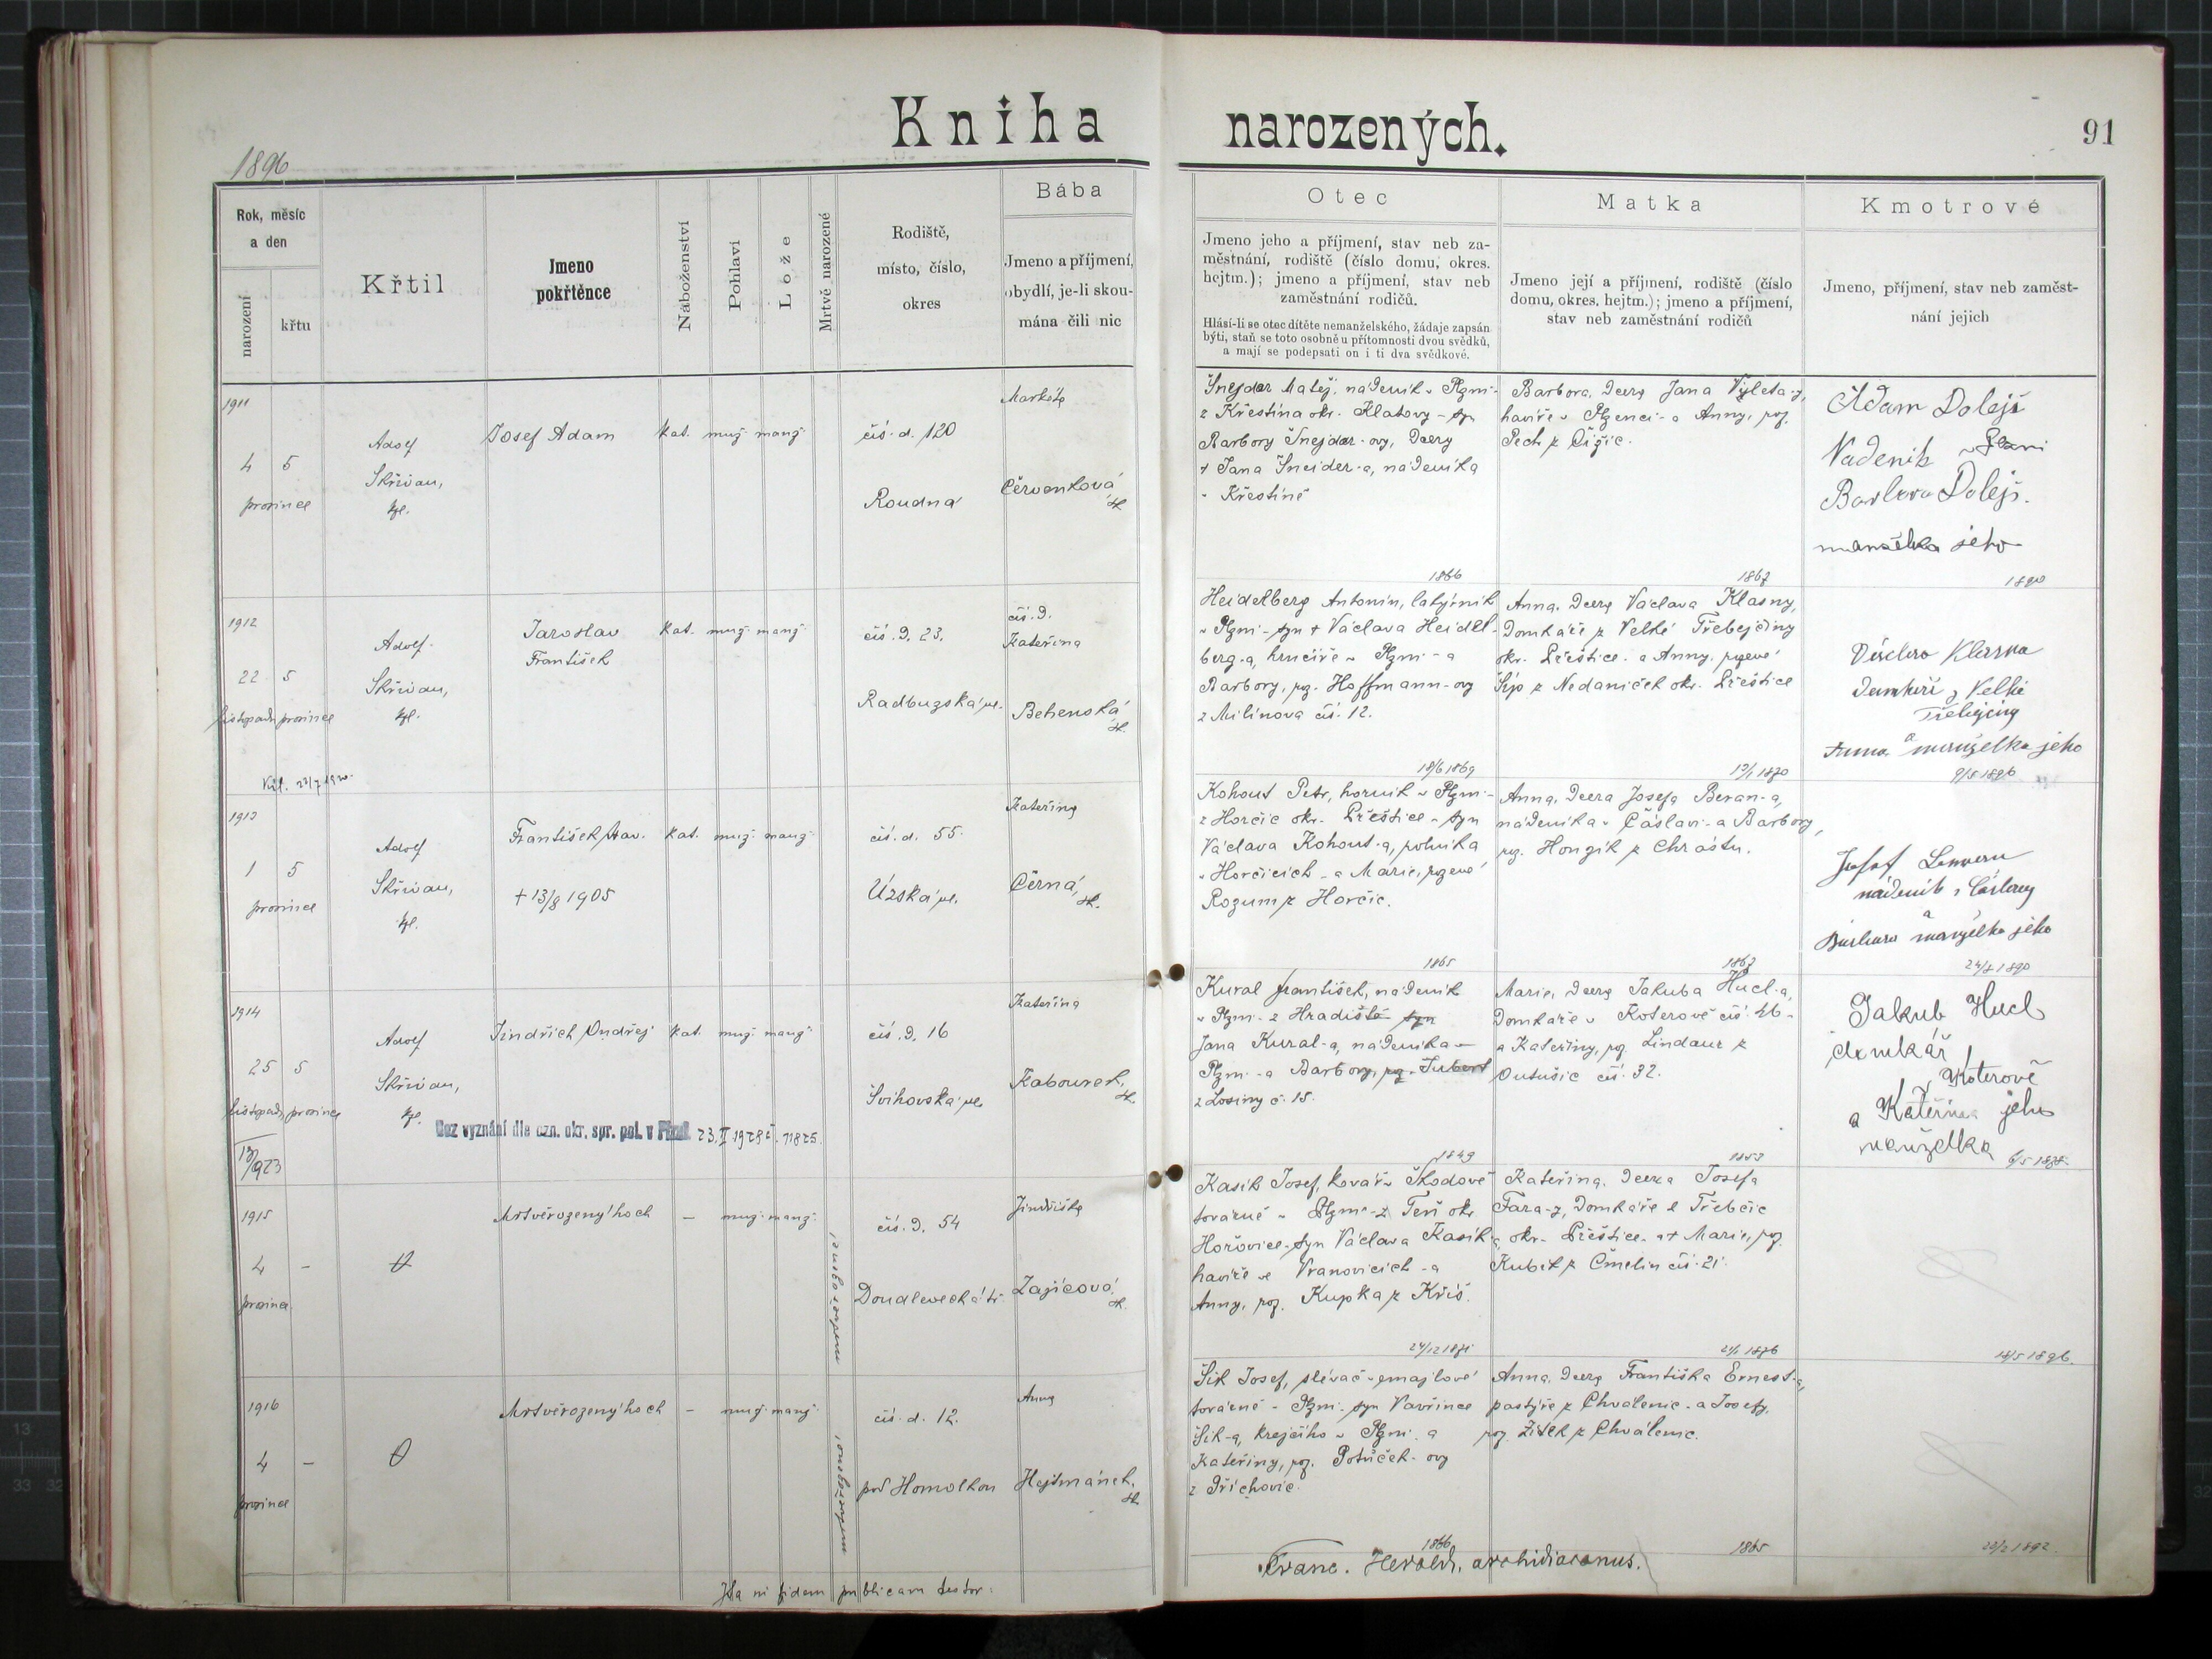 Kniha narozených.
91
1896
Rok, měsíc
a den
narození
křtu
Křtil
Jmeno
pokřtěnce
Náboženství
Pohlaví
Lože
Mrtvě narozené
Rodiště,
místo, číslo,
okres
Bába
Jmeno a příjmení,
obydlí, je-li skou-
mána čili nic
Otec
Jmeno jeho a příjmení, stav neb za-
městnání, rodiště (číslo domu, okres.
hejtm.); jmeno a příjmení, stav neb
zaměstnání rodičů.
Hlásí-li se otec dítěte nemanželského, žádaje zapsán
býti, staň se toto osobně u přítomnosti dvou svědků,
a mají se podepsati on i ti dva svědkové.
Matka
Jmeno její a příjmení, rodiště (číslo
domu, okres, hejtm.); jmeno a příjmení,
stav neb zaměstnání rodičů
Kmotrové
Jmeno, příjmení, stav neb zaměst-
nání jejich
1911
4 5
prosince
Adolf
Skřivan,
kpl.
Josef Adam
kat. muž. manž.
čís. d. 120
Roudná
Markéta
Červenková
Šnejdar Matěj, nádeník v Plzni -
z Křestína okr. Klatovy - syn
Barbory Šnejdar-ovy, dcery
+ Jana Šneider-a, nádeníka
v Křestíně
Barbora, dcera Jana Výleta-y,
havíře v Plzenci - a Anny, roz.
Pech z Čižic.
Adam Dolejš
Nádeník v Plzni
Barbora Dolejš.
manželka jeho
1866
1867
1890
1912
22 5
listopadu prosince
Adolf
Skřivan,
kpl.
Jaroslav
František
kat. muž. manž.
čís. d. 23.
Radbuzská ul.
čís. d.
Kateřina
Behenská
Heidelberg Antonín, latýrník
v Plzni - syn + Václava Heidel-
berg-a, hrnčíře v Plzni - a
Barbory, roz. Hoffmann-ovy
z Milínova čís. 12.
Anna, dcera Václava Klasny,
domkáře z Velké Třebejčiny
okr. Přeštice - a Anny, rozené
Šíp z Nedaniček okr. Přeštice
Václav Klasna
domkář z Velké
Třebejčiny
a
Anna manželka jeho
18/6 1869
1870
9/5 1896
1913
1 5
prosince
Adolf
Skřivan,
kpl.
František Xav.
+ 13/8 1905
kat. muž. manž.
čís. d. 55.
Úzská ul.
Kateřina
Černá,
Kohout Petr, horník v Plzni -
z Horčic okr. Přeštice - syn
Václava Kohout-a, rolníka
v Horčicích - a Marie, rozené
Rozum z Horčic.
Anna, dcera Josefa Beran-a,
nádeníka v Čáslavi - a Barbory,
roz. Hongik z Chrástu.
Josef
nádeník z Čáslavy
a
Barbara manželka jeho
1865
1867
1890
1914
25 5
listopadu prosince
Adolf
Skřivan,
kpl.
Jindřich Ondřej
kat. muž. manž.
čís. d. 16
Švihovská ul.
Kateřina
Kabourek,
Bez vyznání dle ozn. okr. spr. pol. v Plzni 23. II 1928 č. 11825.
Kural František, nádeník
v Plzni - z Hradiště syn
Jana Kural-a, nádeníka v
Plzni - a Barbory, roz. Šubert
z Losiny č. 15.
Marie, dcera Jakuba Hucl-a,
domkáře v Koterově čís. 46 -
a Kateřiny, roz. Lindaur z
Outušic čís. 32.
Jakub Hucl
domkář
v Koterově
a Kateřina jeho
manželka
1849
1853
1915
4 -
prosince
Mrtvěrozený hoch
- muž. manž.
mrtvěrozený
čís. d. 54
Doudlevecká tř.
Jindřiška
Zajícová,
Kasík Josef, kovář v Škodově
továrně v Plzni - z Teří okr.
Hořovice - syn Václava Kasík-a,
havíře ve Vranovicích - a
Anny, roz. Kupka z Kříš.
Kateřina, dcera Josefa
Fara-y, domkáře z Třebčic
okr. Přeštice - a + Marie, roz.
Kubík z Čmelín čís. 21.
24/12 1871
1876
18/5 1896.
1916
4 -
prosince
Mrtvěrozený hoch
- muž. manž.
mrtvěrozený
čís. d. 12.
pod Homolkou
Anna
Hejtmánek,
Šik Josef, slévač v emajlové
továrně v Plzni - syn Vavřince
Šik-a, krejčího v Plzni - a
Kateřiny, roz. Potůček-ovy
z Příchovic
Anna, dcera Františka Ernest-a,
pastýře z Chválenic - a Josefy,
roz. Žítek z Chválenic.
1866
1865
1892.
Ita in fidem publicam testor:
Franc. Herold, archidiaconus.